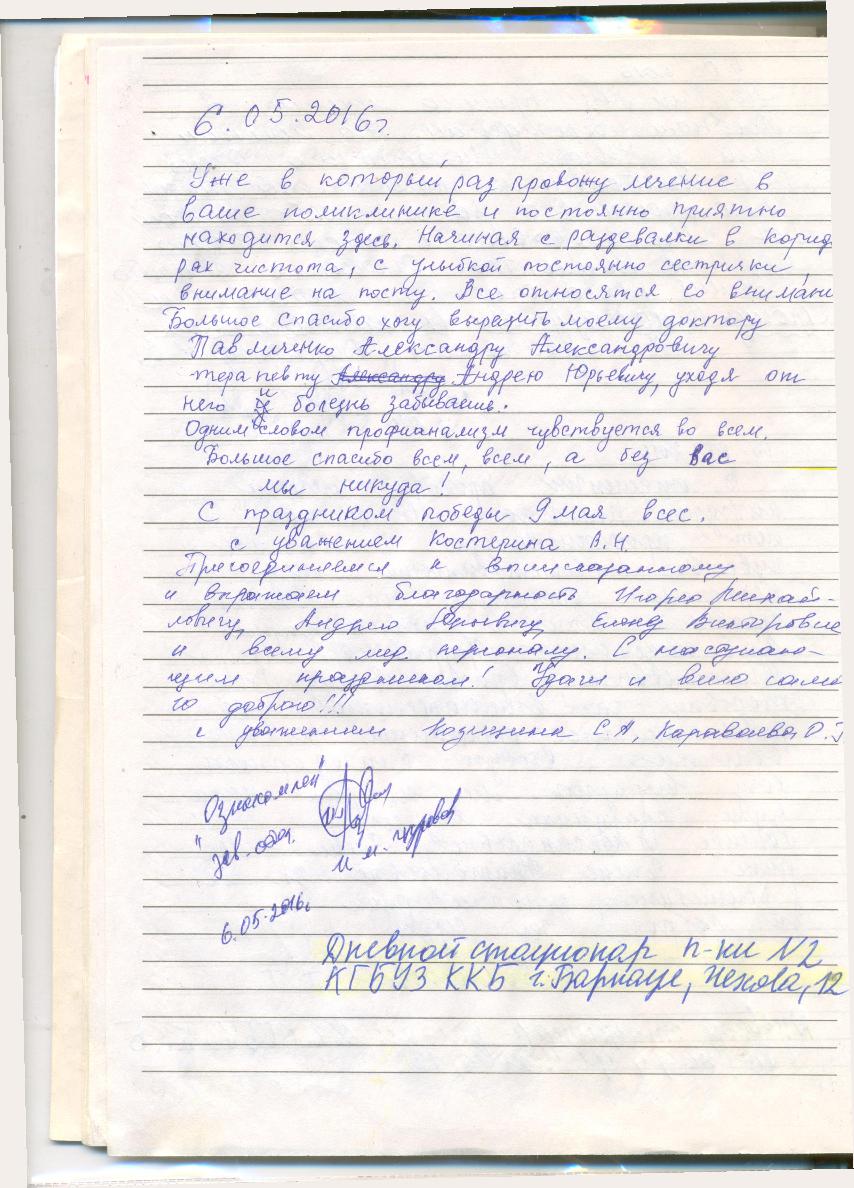 6.05.2016г.
Уже в который раз провожу лечение в
ваше поликлинике и постоянно приятно
находится здесь. Начиная с раздевалки в корид
рах чистота, с улыбкой постоянно сестрички,
внимание на посту. Все относятся со внимани
Большое спасибо хочу выразить моему доктору
Павличенко Александру Александровичу
терапевту Александру Андрею Юрьевичу, уходя от
него и болезнь забываешь.
Одним словом профианализм чувствуется во всем.
Большое спасибо всем, всем, а без вас
мы никуда!
С праздником победы 9 мая всес.
с уважением Костерина А.Н.
Присоединяемся к вышесказанному
и выражаем благодарность Игорю Михай-
ловичу, Андрею Юрьевичу, Елене Викторовне
и всему мед персоналу. С наступаю-
щим праздником! Удачи и всего само
го доброго!!!
с уважением С.А, Караваева О.Г
"Ознакомлен"
зав. отд.
И.М.
6.05.2016г
Дневной стационар п-ки N2
КГБУЗ ККБ г. Барнаул, Чехова, 12